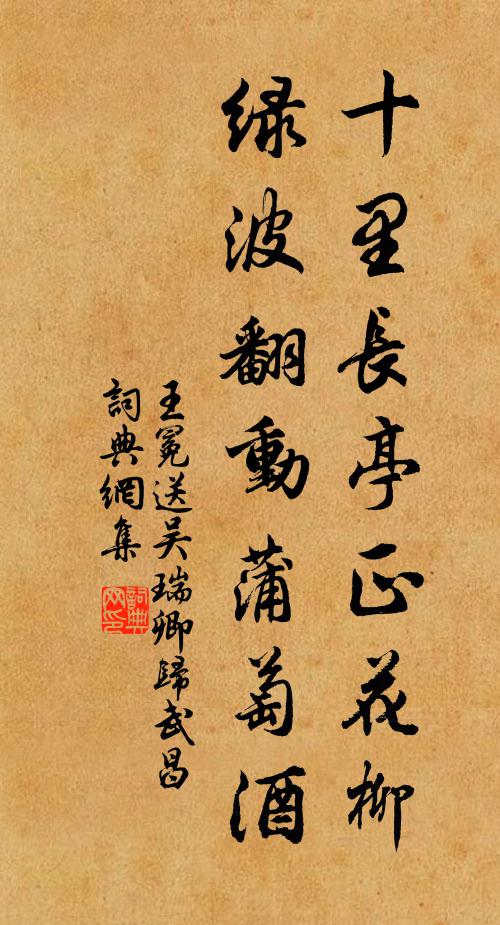 十里長亭正花柳
緑波翻動蒲萄酒
王冕送吴瑞卿歸武昌
詞典網集
詞典
网印